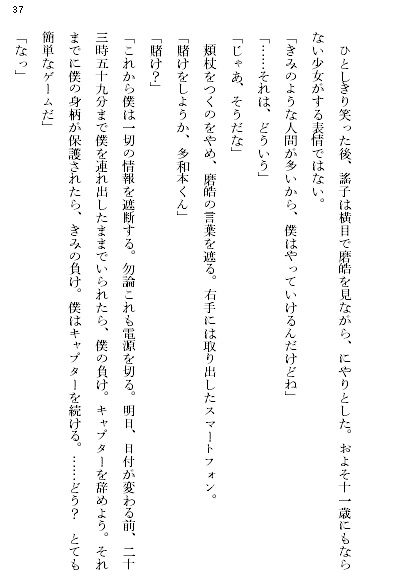 37
ひとしきり笑った後、謠子は横目で磨皓を見ながら、にやりとした。およそ十一歳にもなら
ない少女がする表情ではない。
「きみのような人間が多いから、僕はやっていけるんだけどね」
「……それは、どういう」
「じゃあ、そうだな」
頬杖をつくのをやめ、磨皓の言葉を遮る。右手には取り出したスマートフォン。
「賭けをしようか、多和本くん」
「賭け？」
「これから僕は一切の情報を遮断する。勿論これも電源を切る。明日、日付が変わる前、二十
三時五十九分まで僕を連れ出したままでいられたら、僕の負け。キャプターを辞めよう。それ
までに僕の身柄が保護されたら、きみの負け。僕はキャプターを続ける。……どう？　とても
簡単なゲームだ」
「なっ」